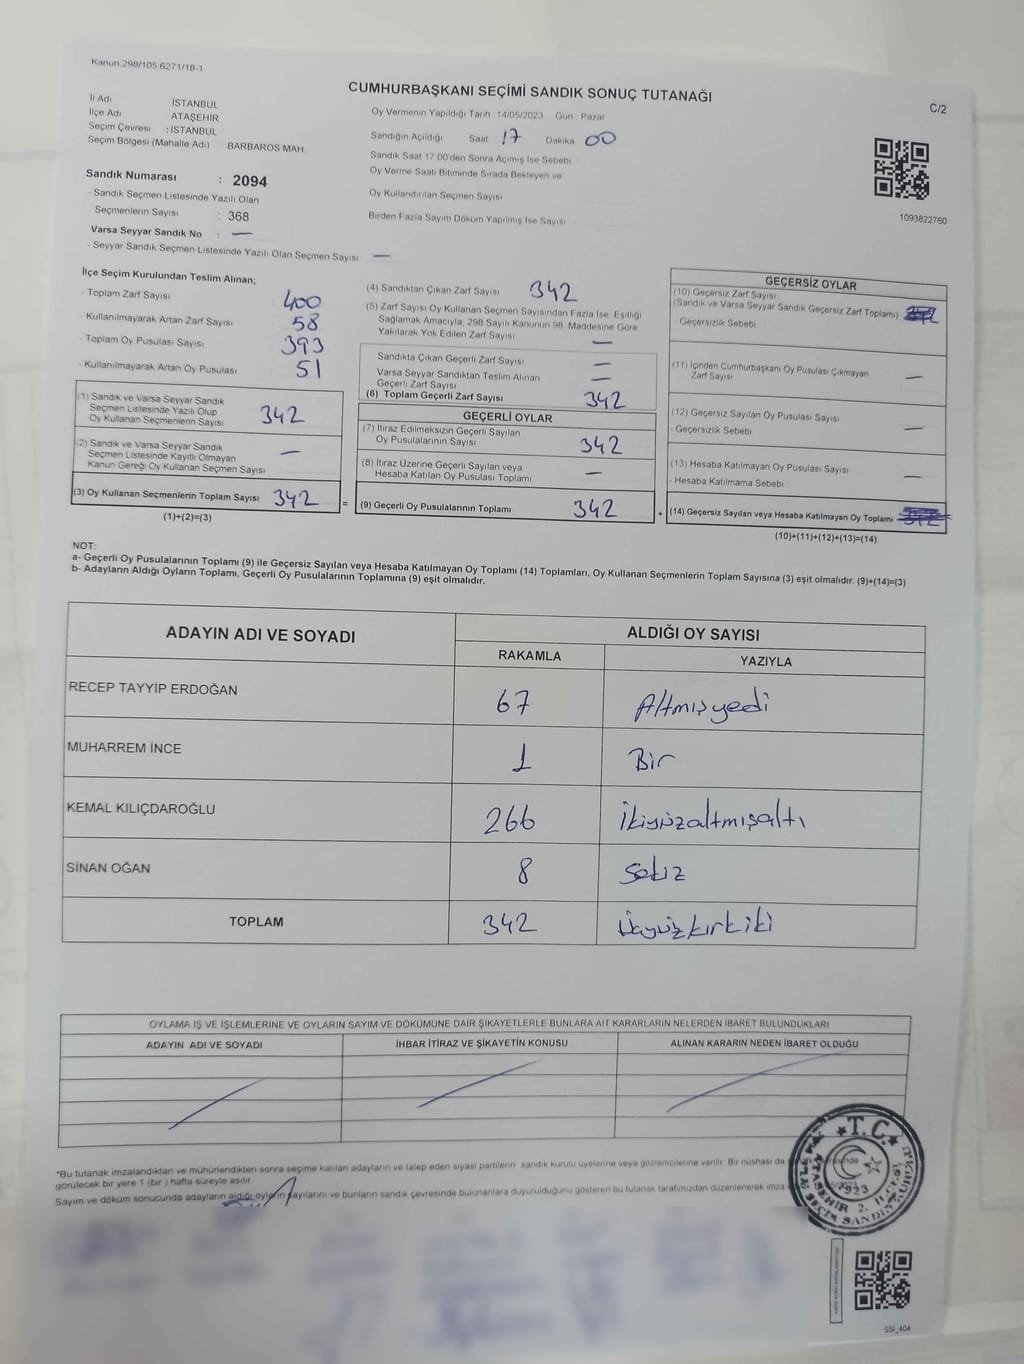 Kanun:298/105:6271/18-1
CUMHURBAŞKANI SEÇİMİ SANDIK SONUÇ TUTANAĞI
C/2
İl Adı İSTANBUL
İlçe Adı ATAŞEHİR
Seçim Çevresi : İSTANBUL
Seçim Bölgesi (Mahalle Adı) BARBAROS MAH.
Oy Vermenin Yapıldığı Tarih 14/05/2023 Gün Pazar
Sandığın Açıldığı Saat 17 Dakika 00
Sandık Saat 17:00'den Sonra Açımış İse Sebebi
Oy Verme Saati Bitiminde Sırada Bekleyen ve
Oy Kullandırılan Seçmen Sayısı
Birden Fazla Sayım Döküm Yapılmış İse Sayısı
1093822760
Sandık Numarası : 2094
- Sandık Seçmen Listesinde Yazılı Olan
Seçmenlerin Sayısı : 368
Varsa Seyyar Sandık No : —
- Seyyar Sandık Seçmen Listesinde Yazılı Olan Seçmen Sayısı —
İlçe Seçim Kurulundan Teslim Alınan;
- Toplam Zarf Sayısı 400
- Kullanılmayarak Artan Zarf Sayısı 58
- Toplam Oy Pusulası Sayısı 393
- Kullanılmayarak Artan Oy Pusulası 51
(1) Sandık ve Varsa Seyyar Sandık
Seçmen Listesinde Yazılı Olup
Oy Kullanan Seçmenlerin Sayısı 342
(2) Sandık ve Varsa Seyyar Sandık
Seçmen Listesinde Kayıtlı Olmayan
Kanun Gereği Oy Kullanan Seçmen Sayısı —
(3) Oy Kullanan Seçmenlerin Toplam Sayısı 342 =
(1)+(2)=(3)
(4) Sandıktan Çıkan Zarf Sayısı 342
(5) Zarf Sayısı Oy Kullanan Seçmen Sayısından Fazla İse, Eşitliği
Sağlamak Amacıyla, 298 Sayılı Kanunun 98. Maddesine Göre
Yakılarak Yok Edilen Zarf Sayısı —
Sandıkta Çıkan Geçerli Zarf Sayısı —
Varsa Seyyar Sandıktan Teslim Alınan
Geçerli Zarf Sayısı —
(6) Toplam Geçerli Zarf Sayısı 342
GEÇERLİ OYLAR
(7) İtiraz Edilmeksizin Geçerli Sayılan
Oy Pusulalarının Sayısı 342
(8) İtiraz Üzerine Geçerli Sayılan veya
Hesaba Katılan Oy Pusulası Toplamı —
(9) Geçerli Oy Pusulalarının Toplamı 342 +
GEÇERSİZ OYLAR
(10) Geçersiz Zarf Sayısı
(Sandık ve Varsa Seyyar Sandık Geçersiz Zarf Toplamı)
- Geçersizlik Sebebi
(11) İçinden Cumhurbaşkanı Oy Pusulası Çıkmayan
Zarf Sayısı —
(12) Geçersiz Sayılan Oy Pusulası Sayısı
- Geçersizlik Sebebi —
(13) Hesaba Katılmayan Oy Pusulası Sayısı
- Hesaba Katılmama Sebebi —
(14) Geçersiz Sayılan veya Hesaba Katılmayan Oy Toplamı
(10)+(11)+(12)+(13)=(14)
NOT:
a- Geçerli Oy Pusulalarının Toplamı (9) ile Geçersiz Sayılan veya Hesaba Katılmayan Oy Toplamı (14) Toplamları, Oy Kullanan Seçmenlerin Toplam Sayısına (3) eşit olmalıdır. (9)+(14)=(3)
b- Adayların Aldığı Oyların Toplamı, Geçerli Oy Pusulalarının Toplamına (9) eşit olmalıdır.
ADAYIN ADI VE SOYADI ALDIĞI OY SAYISI
RAKAMLA YAZIYLA
RECEP TAYYİP ERDOĞAN 67 Altmışyedi
MUHARREM İNCE 1 Bir
KEMAL KILIÇDAROĞLU 266 İkiyüzaltmışaltı
SİNAN OĞAN 8 Sekiz
TOPLAM 342 Üçyüzkırkiki
OYLAMA İŞ VE İŞLEMLERİNE VE OYLARIN SAYIM VE DÖKÜMÜNE DAİR ŞİKAYETLERLE BUNLARA AİT KARARLARIN NELERDEN İBARET BULUNDUKLARI
ADAYIN ADI VE SOYADI İHBAR İTİRAZ VE ŞİKAYETİN KONUSU ALINAN KARARIN NEDEN İBARET OLDUĞU
*Bu tutanak imzalandıktan ve mühürlendikten sonra seçime katılan adayların ve talep eden siyasi partilerin sandık kurulu üyelerine veya gözlemcilerine verilir. Bir nüshası da
görülecek bir yere 1 (bir) hafta süreyle asılır.
Sayım ve döküm sonucunda adayların aldığı oyların sayılarını ve bunların sandık çevresinde bulunanlara duyurulduğunu gösteren bu tutanak tarafımızdan düzenlenerek imza
T.C.
1923
ATAŞEHİR 2. İLÇE
SSI_404